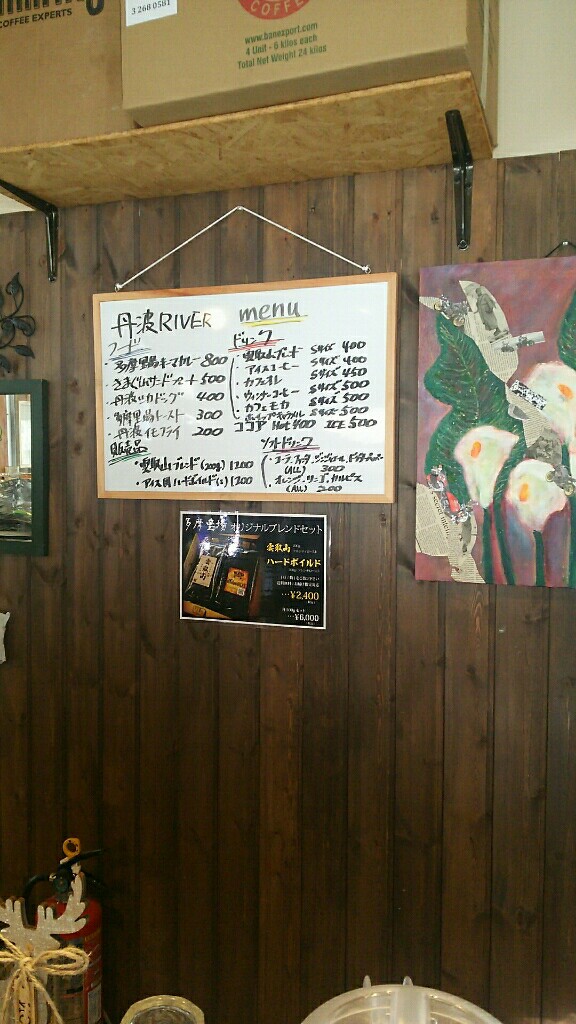 COFFEE EXPERTS
3 268 0581
COFFE
www.banexport.com
4 Unit - 6 kilos each
Total Net Weight 24 kilos
丹波RIVER menu
フード
・多摩里場キーマカレー 800
・きまぐれサンドプレート 500
・丹波リカドッグ 400
・多摩里場トースト 300
・丹波イモフライ 200
販売品
・雲取山ブレンド (200g) 1200
・アイス用ハードボイルド 1200
ドリンク
・雲取山ブレンド Sサイズ 400
・アイスコーヒー Sサイズ 400
・カフェオレ Sサイズ 450
・ウィンナーコーヒー Sサイズ 500
・カフェモカ Sサイズ 500
・ホイップキャラメル Sサイズ 500
ココア Hot 400 ICE 500
ソフトドリンク
・コーラ、ファンタ、ジンジャエール、ドクターペッパー
(ALL) 300
・オレンジ、リンゴ、カルピス
(ALL) 200
多摩里場 オリジナルブレンドセット
雲取山
ハードボイルド
…¥2,400
…¥6,000